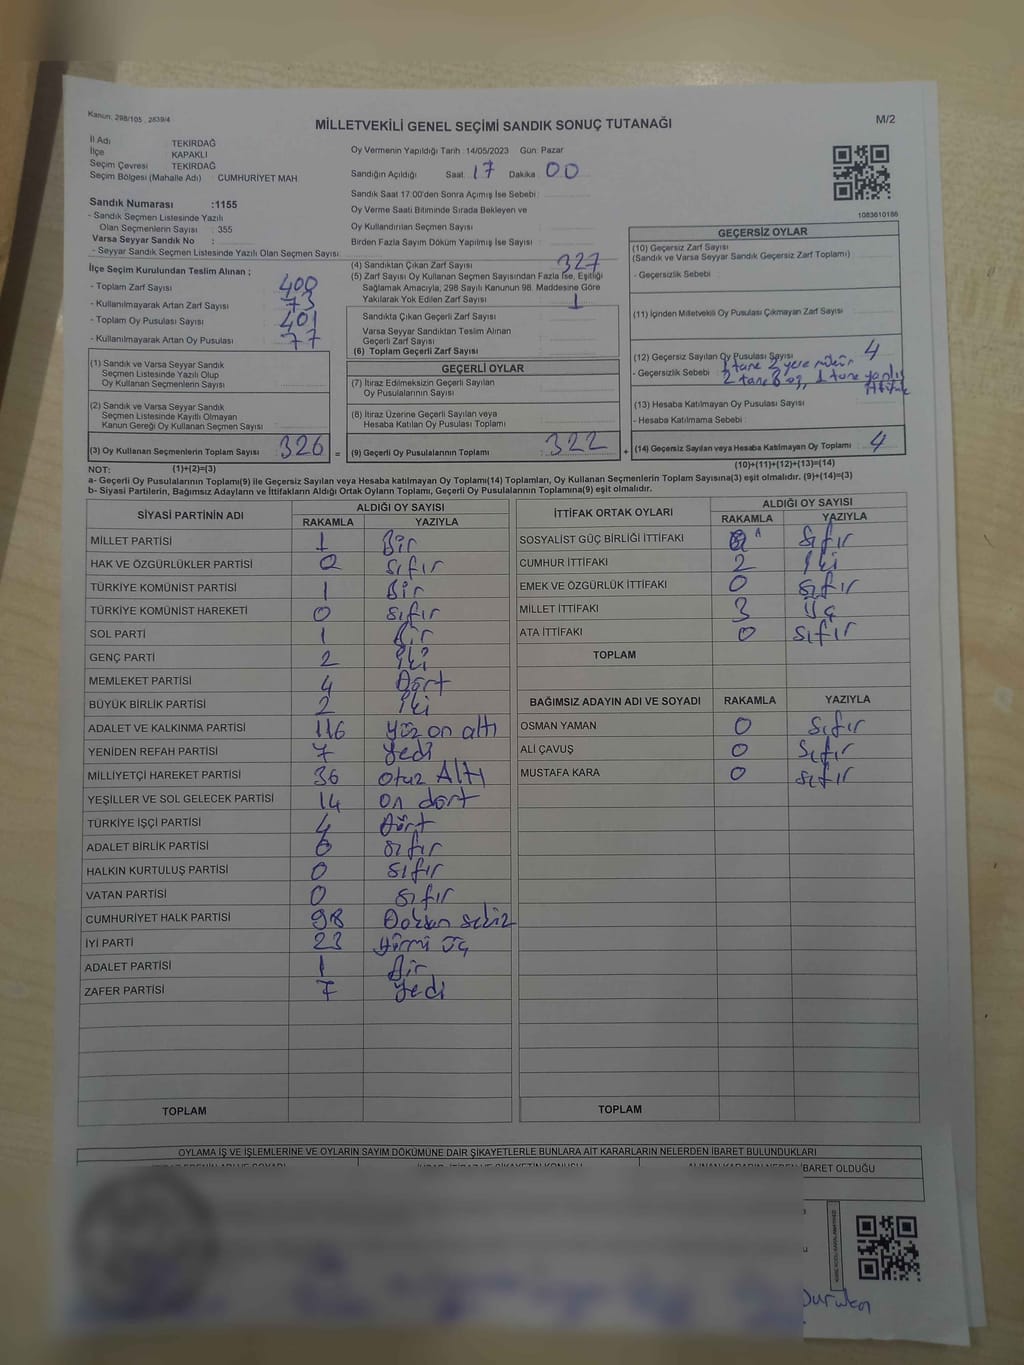 Kanun: 298/105 , 2839/4
MİLLETVEKİLİ GENEL SEÇİMİ SANDIK SONUÇ TUTANAĞI
M/2
İl Adı TEKİRDAĞ
İlçe KAPAKLI
Seçim Çevresi TEKİRDAĞ
Seçim Bölgesi (Mahalle Adı) : CUMHURİYET MAH
Sandık Numarası :1155
- Sandık Seçmen Listesinde Yazılı
Olan Seçmenlerin Sayısı : 355
Varsa Seyyar Sandık No :
- Seyyar Sandık Seçmen Listesinde Yazılı Olan Seçmen Sayısı:
Oy Vermenin Yapıldığı Tarih :14/05/2023 Gün: Pazar
Sandığın Açıldığı Saat: 17 Dakika: 00
Sandık Saat 17.00'den Sonra Açımış İse Sebebi :
Oy Verme Saati Bitiminde Sırada Bekleyen ve
Oy Kullandırılan Seçmen Sayısı :
Birden Fazla Sayım Döküm Yapılmış İse Sayısı :
1083610186
İlçe Seçim Kurulundan Teslim Alınan ;
- Toplam Zarf Sayısı : 400
- Kullanılmayarak Artan Zarf Sayısı : 73
- Toplam Oy Pusulası Sayısı : 401
- Kullanılmayarak Artan Oy Pusulası : 77
(1) Sandık ve Varsa Seyyar Sandık
Seçmen Listesinde Yazılı Olup
Oy Kullanan Seçmenlerin Sayısı :
(2) Sandık ve Varsa Seyyar Sandık
Seçmen Listesinde Kayıtlı Olmayan
Kanun Gereği Oy Kullanan Seçmen Sayısı :
(3) Oy Kullanan Seçmenlerin Toplam Sayısı : 326 =
(4) Sandıktan Çıkan Zarf Sayısı : 327
(5) Zarf Sayısı Oy Kullanan Seçmen Sayısından Fazla İse, Eşitliği
Sağlamak Amacıyla, 298 Sayılı Kanunun 98. Maddesine Göre
Yakılarak Yok Edilen Zarf Sayısı : 1
Sandıkta Çıkan Geçerli Zarf Sayısı :
Varsa Seyyar Sandıktan Teslim Alınan
Geçerli Zarf Sayısı :
(6) Toplam Geçerli Zarf Sayısı :
GEÇERLİ OYLAR
(7) İtiraz Edilmeksizin Geçerli Sayılan
Oy Pusulasının Sayısı :
(8) İtiraz Üzerine Geçerli Sayılan veya
Hesaba Katılan Oy Pusulası Toplamı :
(9) Geçerli Oy Pusulalarının Toplamı : 322 +
GEÇERSİZ OYLAR
(10) Geçersiz Zarf Sayısı
(Sandık ve Varsa Seyyar Sandık Geçersiz Zarf Toplamı) :
- Geçersizlik Sebebi :
(11) İçinden Milletvekili Oy Pusulası Çıkmayan Zarf Sayısı :
(12) Geçersiz Sayılan Oy Pusulası Sayısı : 4
- Geçersizlik Sebebi : 1 tane 2 yere mühür
2 tane Boş, 1 tane yanlış
(13) Hesaba Katılmayan Oy Pusulası Sayısı :
- Hesaba Katılmama Sebebi :
(14) Geçersiz Sayılan veya Hesaba Katılmayan Oy Toplamı : 4
NOT: (1)+(2)=(3)
(10)+(11)+(12)+(13)=(14)
a- Geçerli Oy Pusulalarının Toplamı(9) ile Geçersiz Sayılan veya Hesaba katılmayan Oy Toplamı(14) Toplamları, Oy Kullanan Seçmenlerin Toplam Sayısına(3) eşit olmalıdır. (9)+(14)=(3)
b- Siyasi Partilerin, Bağımsız Adayların ve İttifakların Aldığı Ortak Oyların Toplamı, Geçerli Oy Pusulalarının Toplamına(9) eşit olmalıdır.
SİYASİ PARTİNİN ADI ALDIĞI OY SAYISI
RAKAMLA YAZIYLA
MİLLET PARTİSİ 1 Bir
HAK VE ÖZGÜRLÜKLER PARTİSİ 0 sıfır
TÜRKİYE KOMÜNİST PARTİSİ 1 Bir
TÜRKİYE KOMÜNİST HAREKETİ 0 sıfır
SOL PARTİ 1 Bir
GENÇ PARTİ 2 iki
MEMLEKET PARTİSİ 4 Dört
BÜYÜK BİRLİK PARTİSİ 2 iki
ADALET VE KALKINMA PARTİSİ 116 yüz on altı
YENİDEN REFAH PARTİSİ 7 yedi
MİLLİYETÇİ HAREKET PARTİSİ 36 otuz Altı
YEŞİLLER VE SOL GELECEK PARTİSİ 14 on dört
TÜRKİYE İŞÇİ PARTİSİ 4 Dört
ADALET BİRLİK PARTİSİ 0 sıfır
HALKIN KURTULUŞ PARTİSİ 0 sıfır
VATAN PARTİSİ 0 sıfır
CUMHURİYET HALK PARTİSİ 98 Doksan sekiz
İYİ PARTİ 23 yirmi üç
ADALET PARTİSİ 1 Bir
ZAFER PARTİSİ 7 yedi
TOPLAM
İTTİFAK ORTAK OYLARI ALDIĞI OY SAYISI
RAKAMLA YAZIYLA
SOSYALİST GÜÇ BİRLİĞİ İTTİFAKI sıfır
CUMHUR İTTİFAKI 2 iki
EMEK VE ÖZGÜRLÜK İTTİFAKI 0 sıfır
MİLLET İTTİFAKI 3 üç
ATA İTTİFAKI 0 sıfır
TOPLAM
BAĞIMSIZ ADAYIN ADI VE SOYADI RAKAMLA YAZIYLA
OSMAN YAMAN 0 sıfır
ALİ ÇAVUŞ 0 sıfır
MUSTAFA KARA 0 sıfır
TOPLAM
OYLAMA İŞ VE İŞLEMLERİNE VE OYLARIN SAYIM DÖKÜMÜNE DAİR ŞİKAYETLERLE BUNLARA AİT KARARLARIN NELERDEN İBARET BULUNDUKLARI
İBARET OLDUĞU